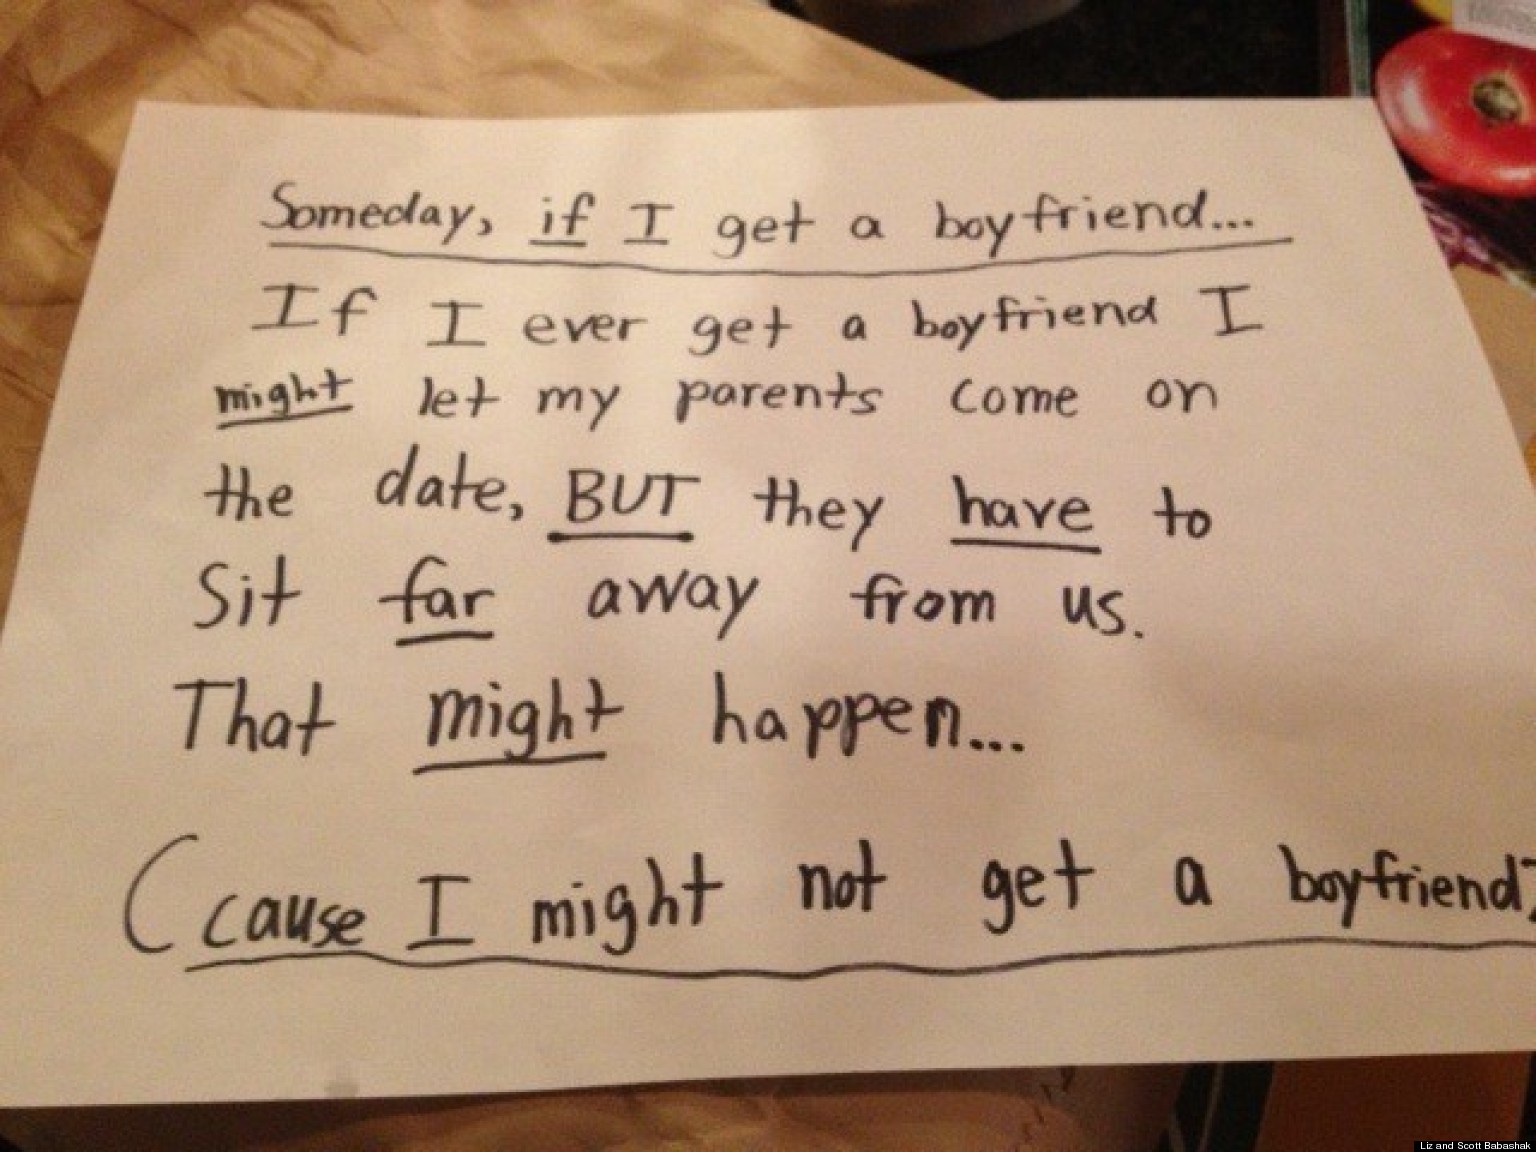 Someday, if I get a boyfriend...
If I ever get a boyfriend I
might let my parents come on
the date, BUT they have to
Sit far away from us.
That might happen...
(cause I might not get a boyfriend)
Liz and Scott Babashak